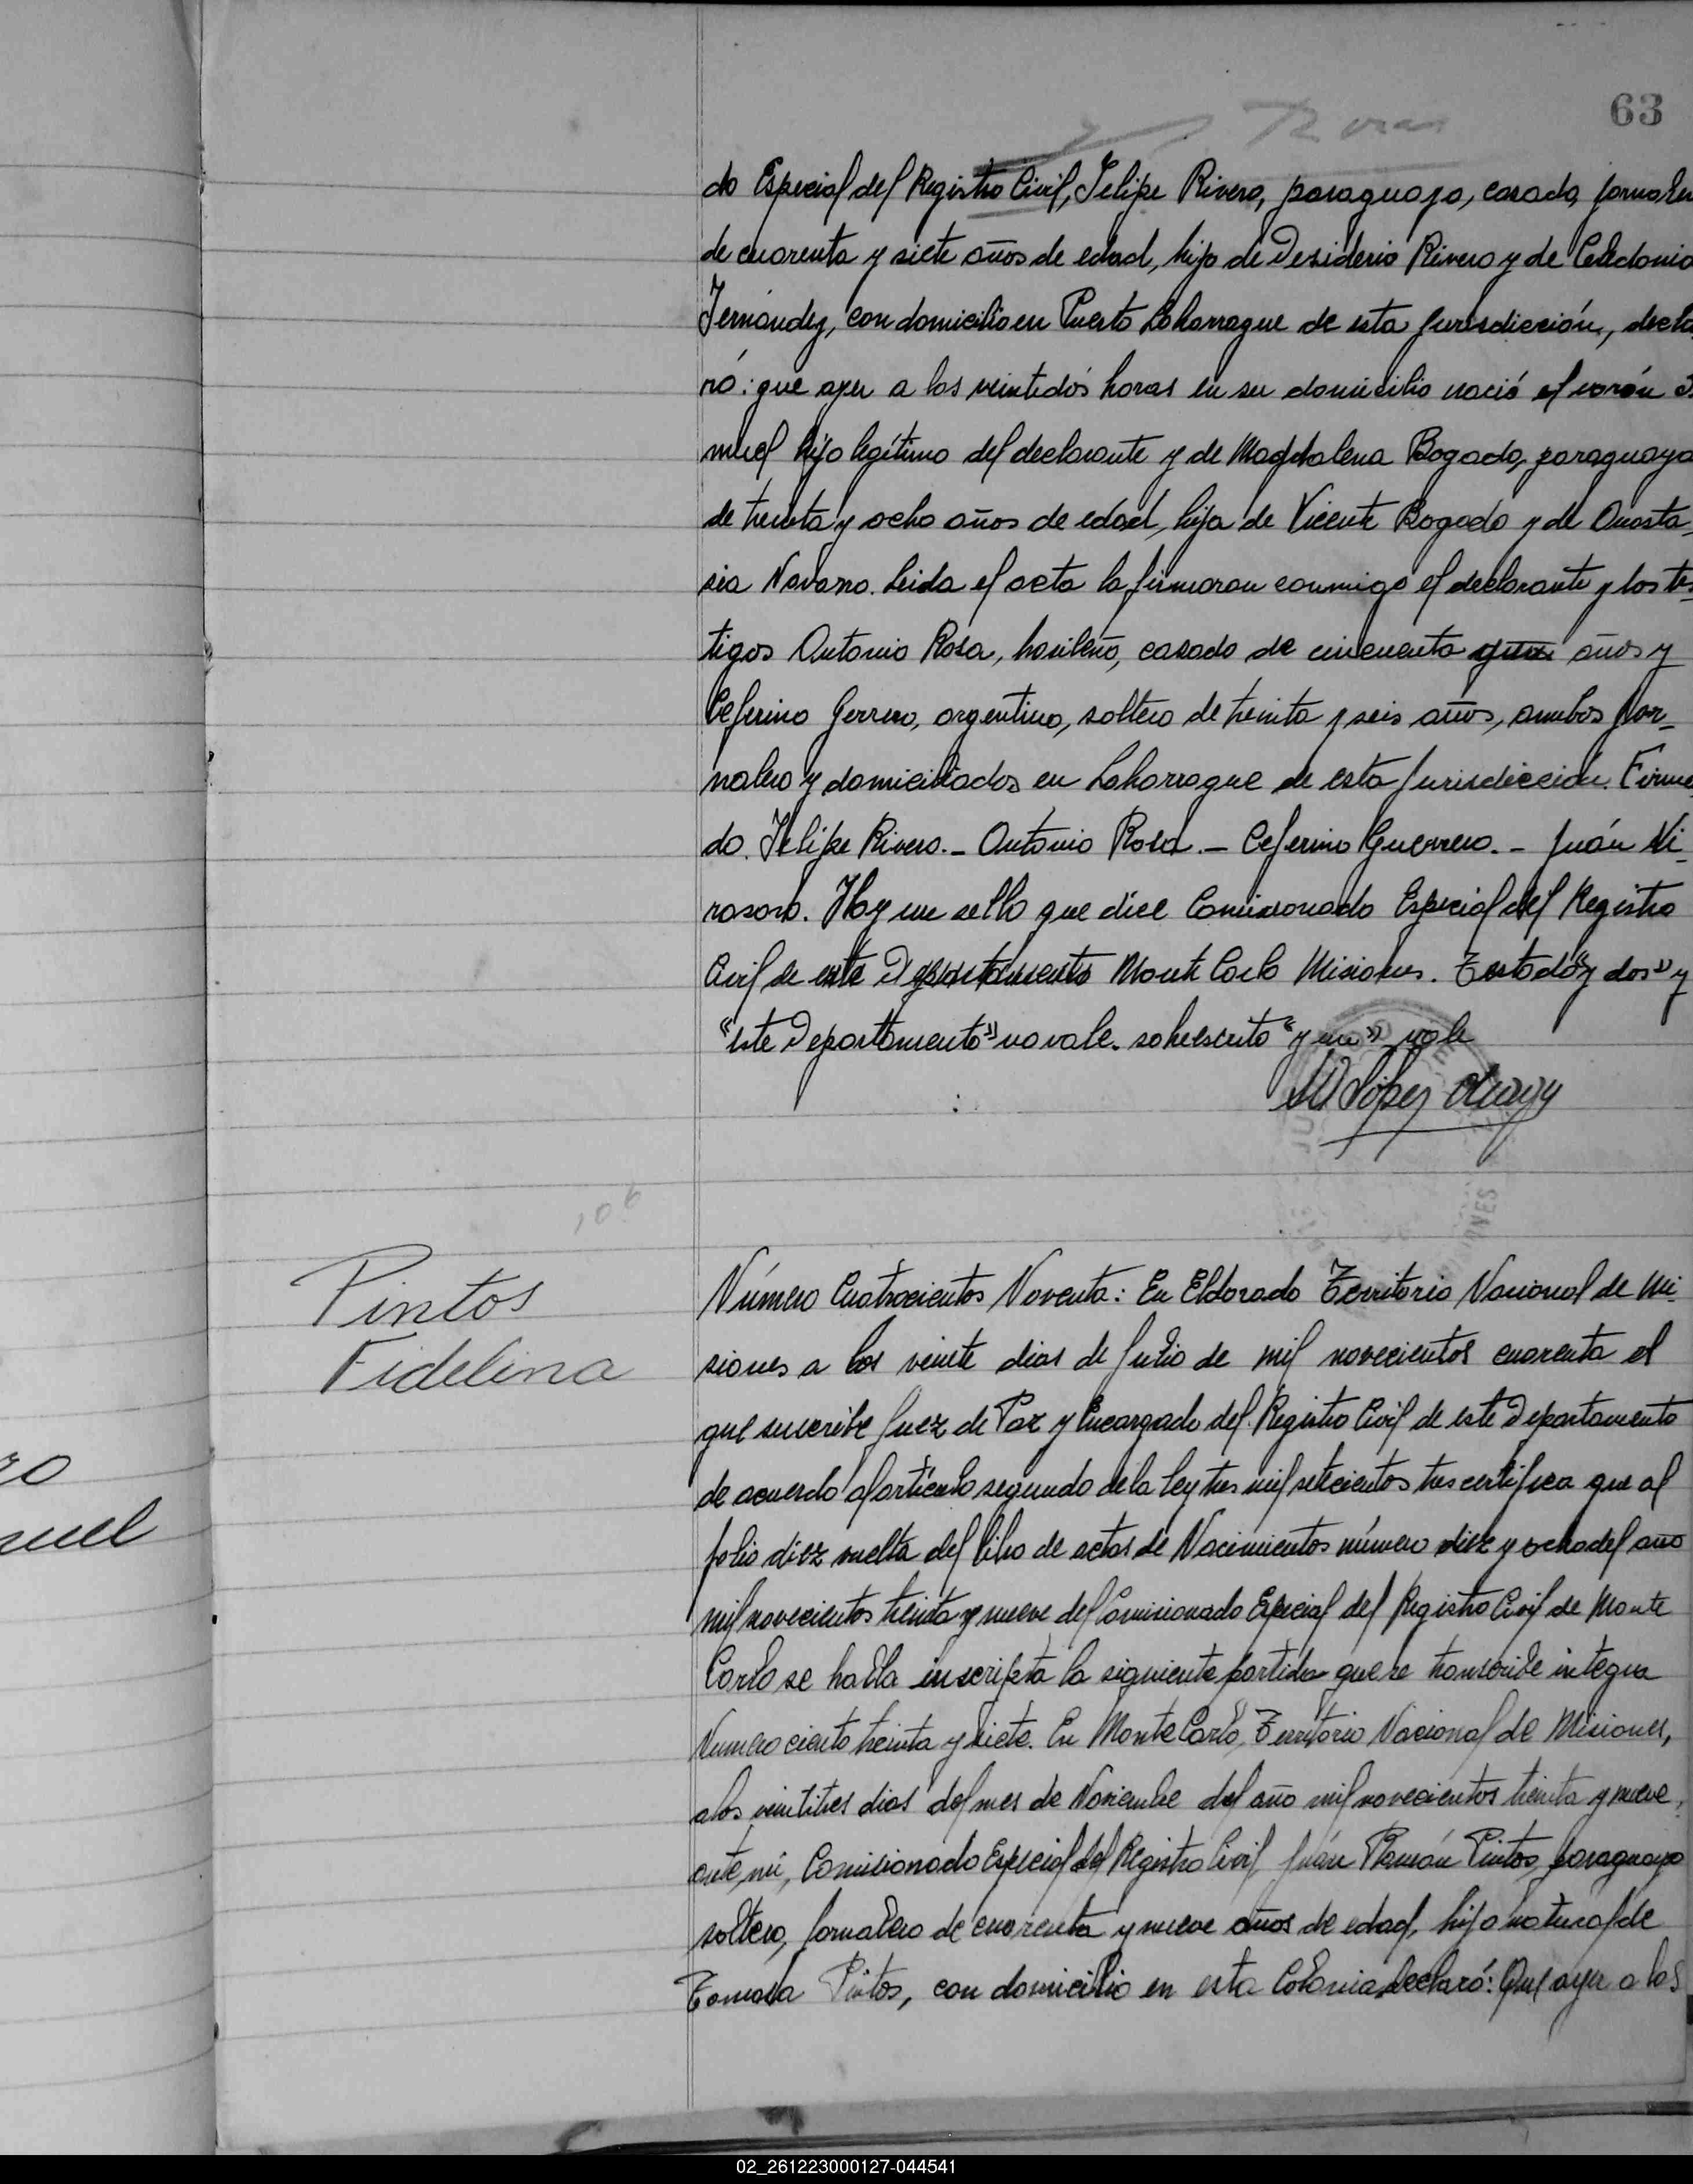 63
do Especial del Registro Civil, Felipe Rivero, paraguayo, casado, jornaler
de cuarenta y siete años de edad, hijo de Desiderio Rivero y de Celedonia
Fernández, con domicilio en Puerto Laharrague de esta Jurisdicción, decla
ró: que ayer a las veintidós horas en su domicilio nació el varón
muel hijo legítimo del declarante y de Magdalena Bogado, paraguaya
de treinta y ocho años de edad, hija de Vicente Bogado y de Anasta-
sia Navarro. Leida el acta la firmaron conmigo el declarante y los tes-
tigos Antonio Rosa, brasileño, casado de cincuenta años y
Ceferino Gerrero, argentino, soltero de treinta y seis años, ambos jor-
nalero y domiciliados en Laharrague de esta Jurisdicción. Firma
do. Felipe Rivero.- Antonio Rosa.- Ceferino Guerrero.- Juán Ni-
rosono. Hay un sello que dice Comisionado Especial del Registro
Civil de este Departamento Monte Carlo Misiones. Testado "y dos" y
"este Departamento" no vale. sobreescrito "y un" vale
López
106
Pintos
Fidelina
ro
nuel
Número Cuatrocientos Noventa: En Eldorado Territorio Nacional de Mi-
siones a los veinte dias de Julio de mil novecientos cuarenta el
que suscribe Juez de Paz y Encargado del Registro Civil de este Departamento
de acuerdo al artículo segundo de la ley tres mil setecientos tres certifica que al
folio diez vuelta del libro de actas de Nacimientos número diez y ocho del año
mil novecientos treinta y nueve del Comisionado Especial del Registro Civil de Monte
Carlo se halla inscripta la siguiente partida que se transcribe integra
Numero ciento treinta y siete. En Monte Carlo, Territorio Nacional de Misiones,
a los veintitres dias del mes de Noviembre del año mil novecientos treinta y nueve,
ante mi, Comisionado Especial del Registro Civil Juán Ramón Pintos, paraguayo
soltero, jornalero de cuarenta y nueve años de edad, hijo natural de
Tomasa Pintos, con domicilio en esta Colonia declaró: Que ayer a las
02_261223000127-044541